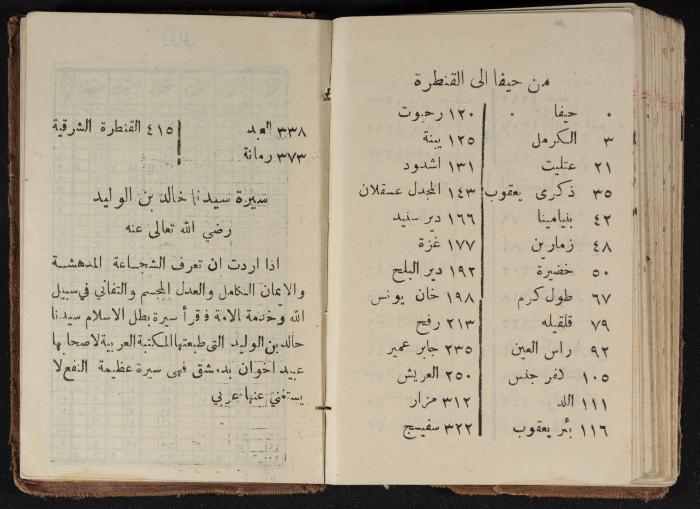 من حيفا الى القنطرة
٠ حيفا
٣ الكرمل
٢١ عتليت
٣٥ ذكرى يعقوب
٤٢ بنيامينا
٤٨ زمارين
٥٠ خضيرة
٦٧ طول كرم
٧٩ قلقيله
٩٢ راس العين
١٠٥ كفر جنس
١١١ اللد
١١٦ بئر يعقوب
١٢٠ رحبوت
١٢٥ يبنة
١٣١ اشدود
١٤٣ المجدل عسقلان
١٦٦ دير سنيد
١٧٧ غزة
١٩٢ دير البلح
١٩٨ خان يونس
٢١٣ رفح
٢٣٥ جابر عمير
٢٥٠ العريش
٣١٢ مزار
٣٢٢ سفيج
٣٣٨ العبد
٣٧٣ رمانة
٤١٥ القنطرة الشرقية
سيرة سيدنا خالد بن الوليد
رضي الله تعالى عنه
اذا اردت ان تعرف الشجاعة المدهشة
والايمان الكامل والعدل المجسم والتفاني في سبيل
الله وخدمة الامة فاقرأ سيرة بطل الاسلام سيدنا
خالد بن الوليد التي طبعتها المكتبة العربية لاصحابها
عبيد اخوان بدمشق فهي سيرة عظيمة النفع لا
يستغني عنها عربي